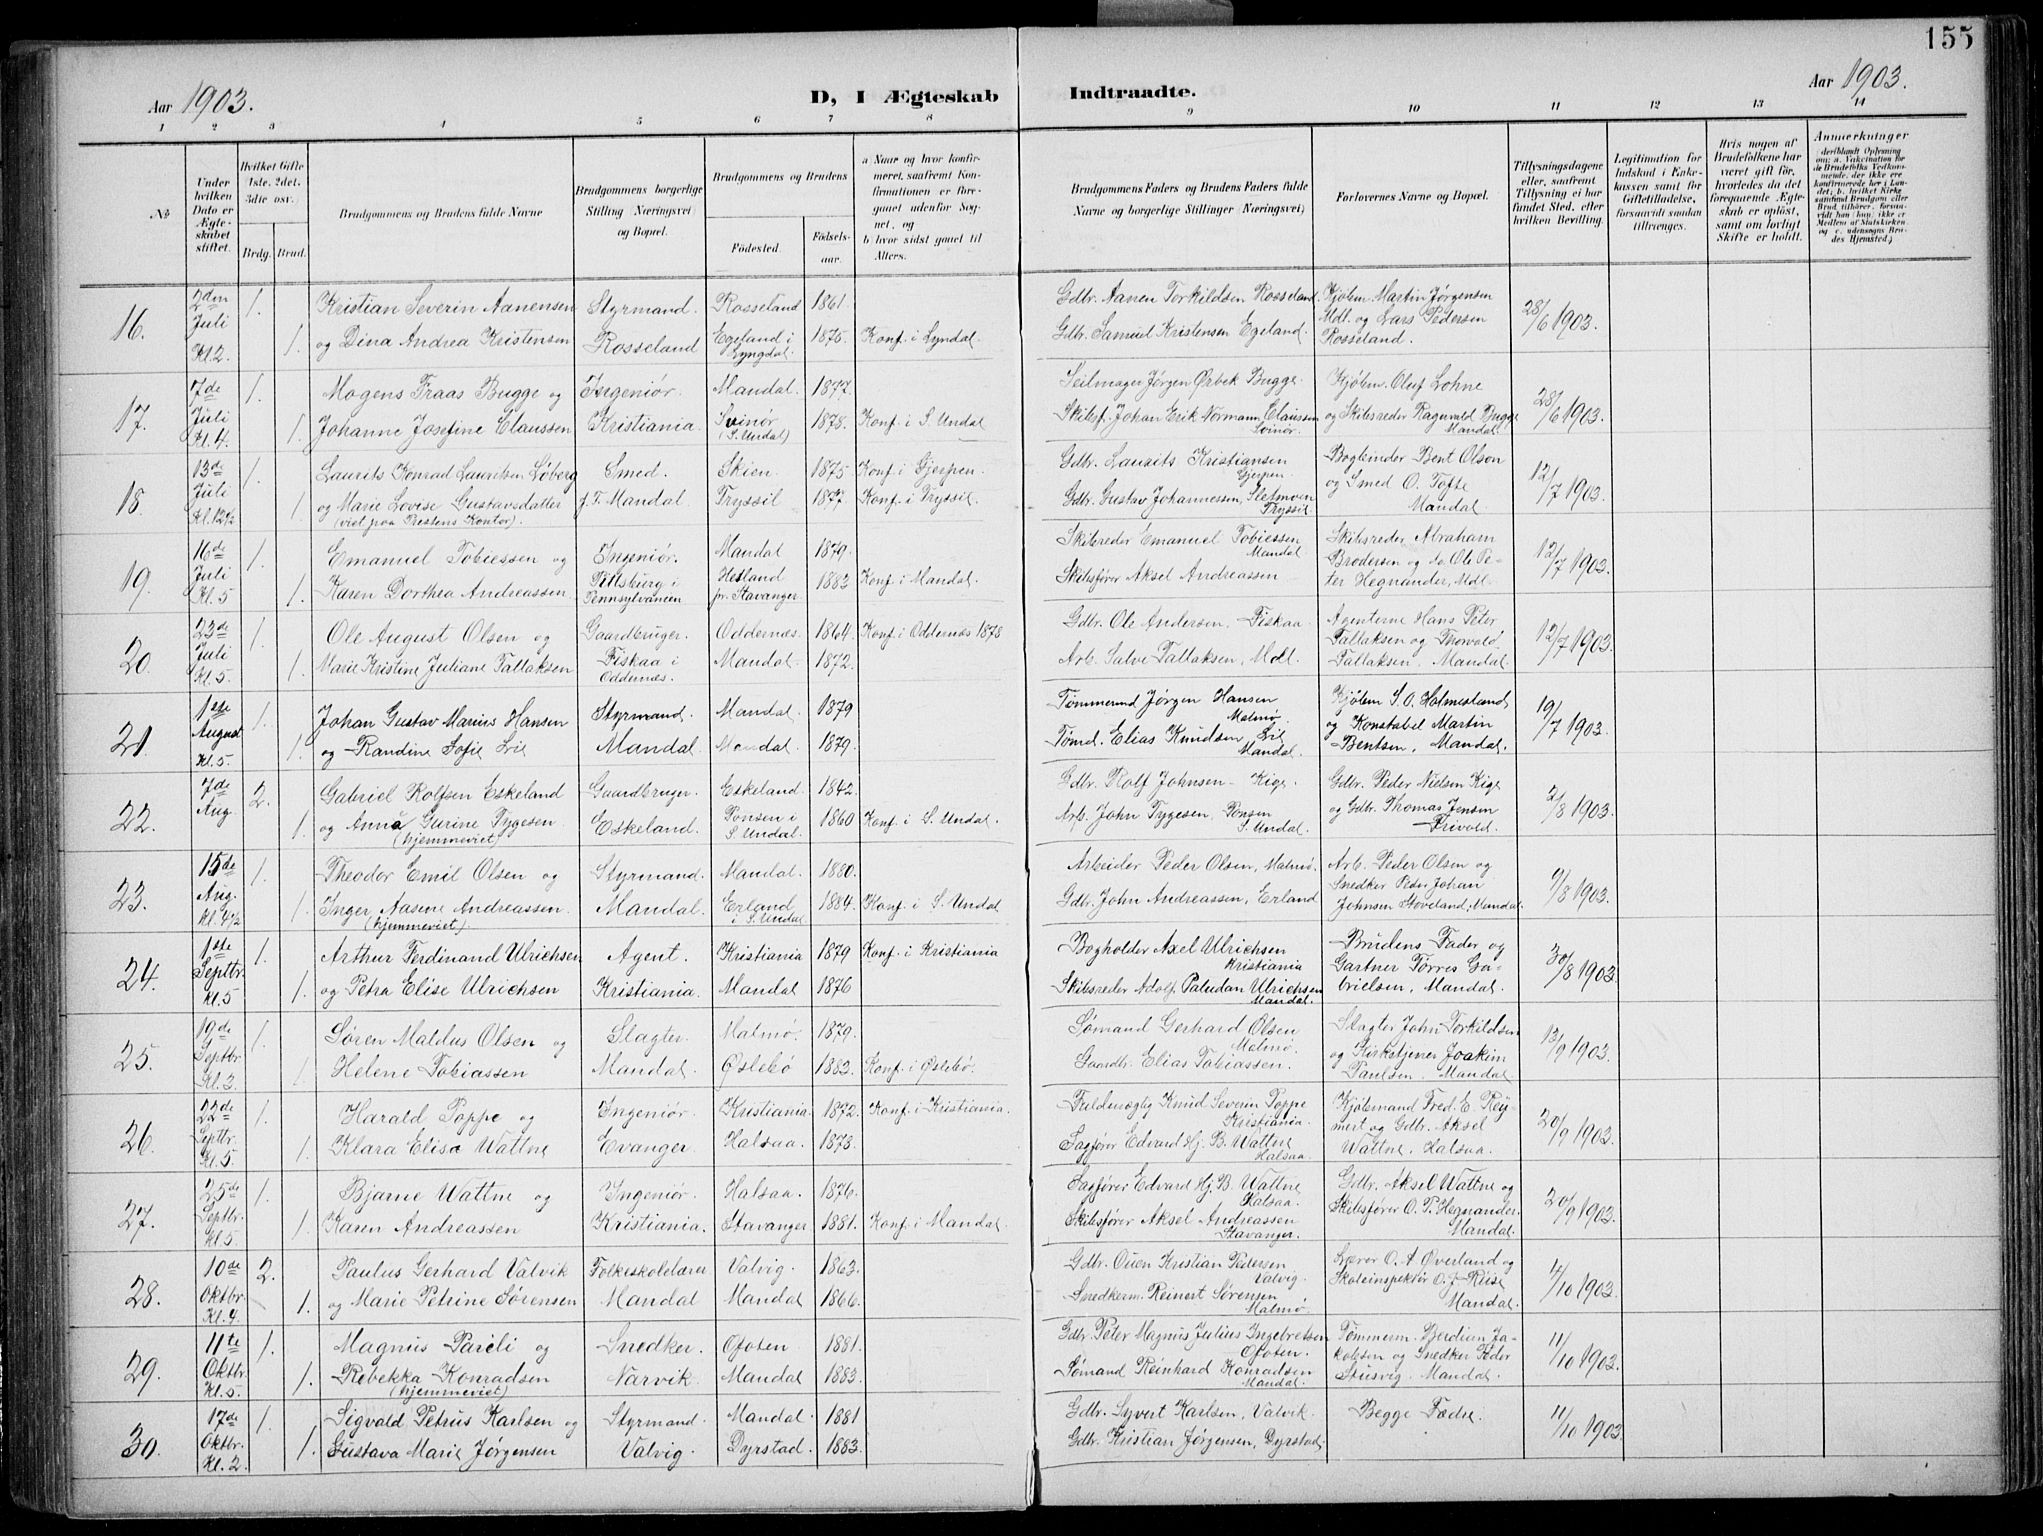 155
Aar 1903.
D, I Ægteskab Indtraadte.
Aar 1903.
1 2 3 4 5 6 7 8 9 10 11 12 13 14
№
Under hvilken Dato er Ægteskabet stiftet.
Hvilket Gifte 1ste, 2det, 3die osv.
Brdg. Brud.
Brudgommens og Brudens fulde Navne
Brudgommens borgerlige Stilling (Næringsvei) og Bopæl.
Brudgommens og Brudens
Födested.
Födsels-aar.
a) Naar og hvor konfirmeret, saafremt Konfirmationen er foregaaet udenfor Sognet, og
b) hvor sidst gaaet til Alters.
Brudgommens Faders og Brudens Faders fulde Navne og borgerlige Stillinger (Næringsvei)
Forlovernes Navne og Bopæl.
Tillysningsdagene eller, saafremt Tillysning ei har fundet Sted, efter hvilken Bevilling.
Legitimation for Indskud i Enkekassen samt for Giftetilladelse, forsaavidt saadan tiltrænges.
Hvis nogen af Brudefolkene har været gift før, hvorledes da det foregaaende Ægteskab er opløst, samt om lovligt Skifte er holdt.
Anmærkninger
deriblandt Oplysning om: a. Vakcination for de Brudefolks Vedkommende, der ikke ere konfirmerede her i Landet; b. hvilket Kirkesamfund Brudgom eller Brud tilhører, forsaavidt han (hun) ikke er Medlem af Statskirken og c. udensogns Brudes Hjemsted.)
16. 2den Juli Kl. 2. 1. Kristian Severin Aanensen Styrmand. Rosseland 1861. Gdbr. Aanen Torkildsen Rosseland. Kjøbm. Martin Jørgensen Mdl. og Lars Pedersen Rosseland. 28/6 1903.
1. og Dina Andrea Kristensen Rosseland Egeland i Lyngdal. 1875. Konf. i Lyndal. Gdbr. Samuel Kristensen Egeland.
17. 7de Juli Kl. 4. 1. Mogens Fraas Bugge og Ingeniør. Mandal. 1877. Seilmager Jørgen Ørbek Bugge. Kjøbm. Oluf Lohne og Skibsreder Ragnvald Bugge Mandal. 28/6 1903.
1. Johanne Josefine Claussen Kristiania. Svinør (S. Undal) 1878. Konf. i S. Undal Skibsf. Johan Erik Normann Claussen Svinør.
18. 13de Juli Kl. 12½ 1. Laurits Konrad Lauritsen Løberg Smed. Skien. 1875. Konf. i Gjerpen. Gdbr. Laurits Kristiansen Gjerpen. Bogbinder Bent Olson og Smed O. Tofte Mandal. 12/7 1903.
1. og Marie Lovise Gustavsdatter (viet paa Prestens Kontor). f. T. Mandal. Tryssil 1877. Konf. i Tryssil. Gdbr. Gustav Johannessen, Sletmoen Tryssil.
19. 16de Juli Kl. 5 1. Emanuel Tobiessen og Ingeniør. Mandal 1879. Skibsreder Emanuel Tobiessen Mandal Skibsreder Abraham Brodersen og do Ole Peter Hegnander, Mdl. 12/7 1903.
1. Karen Dorthea Andreassen Pittsburg i Pennsylvanien Hetland pr. Stavanger. 1883 Konf. i Mandal. Skibsfører Aksel Andreassen
20. 23de Juli Kl. 5. 1. Ole August Olsen og Gaardbruger. Oddernæs. 1864. Konf. i Oddernæs 1878 Gdbr. Ole Andersen, Fiskaa. Agenterne Hans Peter Tallaksen og Thorvald Tallaksen, Mandal. 12/7 1903.
1. Marie Kristine Juliane Tallaksen Fiskaa i Oddernæs. Mandal. 1872. Arb. Salve Tallaksen, Mdl.
21. 1ste August Kl. 5. 1. Johan Gustav Marius Hansen Styrmand. Mandal. 1879 Tømmermd Jørgen Hansen Malmø. Kjøbm S. O. Holmesland og Konstabel Martin Bentsen, Mandal. 19/7 1903.
1. og Randine Sofie Lie Mandal. Mandal 1879. Tømd. Elias Knudsen Lie Mandal.
22. 7de Aug. 2. Gabriel Rolfsen Eskeland Gaardbruger. Eskeland. 1842. Gdbr. Rolf Johnsen - Kige. Gdbr. Peder Nielsen Kige og Gdbr. Thomas Jensen Frivold. 2/8 1903.
1. og Anna Gurine Tygesen (hjemmeviet) Eskeland. Ponsen i S. Undal. 1860 Konf. i S. Undal. Arb. John Tygesen, Ponsen S. Undal.
23. 15de Aug. Kl. 4½ 1. Theodor Emil Olsen og Styrmand. Mandal. 1880. Arbeider Peder Olsen, Malmø. Arb. Peder Olsen og Snedker Peder Johan Johnsen Stoveland, Mandal. 9/8 1903.
1. Inger Aasene Andreassen. (hjemmeviet). Mandal. Erland i S. Undal 1884. Konf. i S. Undal Gdbr. John Andreassen, Erland
24. 1ste Septbr. Kl. 5 1. Arthur Ferdinand Ulrichsen Agent. Kristiania 1879 Konf. i Kristiania Bogholder Axel Ulrichsen Kristiania Brudens Fader og Gartner Torres Gabrielsen, Mandal. 30/8 1903.
1. og Petra Elise Ulrichsen Kristiania. Mandal 1876 Skibsreder Adolf Paludan Ulrichsen Mandal.
25. 19de Septbr. Kl. 3. 1. Søren Maldus Olsen og Slagter. Malmø. 1879. Sømand Gerhard Olsen Malmø. Slagter John Torkildsen og Kirketjener Joakim Paulsen. Mandal. 13/9 1903.
1. Helene Tobiassen Mandal. Øslebø 1883. Konf. i Øslebø. Gaardbr. Elias Tobiassen.
26. 22de Septbr. Kl. 5. 1. Harald Poppe og Ingeniør. Kristiania. 1872. Konf. i Kristiania. Fuldmægtig Knud Severin Poppe Kristiania. Kjøbmand Fred. E. Reymert og Gdbr. Aksel Wattne, Halsaa. 20/9 1903.
1. Klara Elise Wattne Evanger. Halsaa. 1873. Sagfører Edvard Hj. B. Wattne Halsaa.
27. 25de Septbr. Kl. 5. 1. Bjarne Wattne og Ingeniør. Halsaa. 1876. Sagfører Edvard Hj. B. Wattne Halsaa. Gdbr. Aksel Wattne og Skibsfører O. P. Hegnander. Mandal. 20/9 1903.
1. Karen Andreassen Kristiania. Stavanger 1881. Konf. i Mandal. Skibsfører Aksel Andreassen Stavanger.
28. 10de Oktbr. Kl. 4. 2. Paulus Gerhard Valvik Folkeskolelærer Valvig. 1863. Gdbr. Ouen Kristian Pedersen Valvig. Lærer O. A. Øverland og Skoleinspektør O. J. Riise Mandal. 4/10 1903.
1. og Marie Petrine Sørensen Mandal Mandal 1866. Snedkerm. Reinert Sørensen Malmø
29. 11te Oktbr. Kl. 5. 1. Magnus Pareli og Snedker. Ofoten 1881. Gdbr. Peter Magnus Julius Ingebretsen Ofoten. Tømmerm. Berdian Jakobsen og Snedker Peder Stusvig. Mandal. 11/10 1903.
1. Rebekka Konradsen (hjemmeviet) Narvik. Mandal 1883. Sømand Reinhard Konradsen Mandal.
30. 17de Oktbr. Kl. 2. 1. Sigvald Petrus Karlsen og Styrmand. Mandal. 1881 Gdbr. Syvert Karlsen, Valvik. Begge Fædre. 11/10 1903.
1. Gustava Marie Jørgensen Valvig. Dyrstad. 1883. Gdbr. Kristian Jørgensen, Dyrstad.